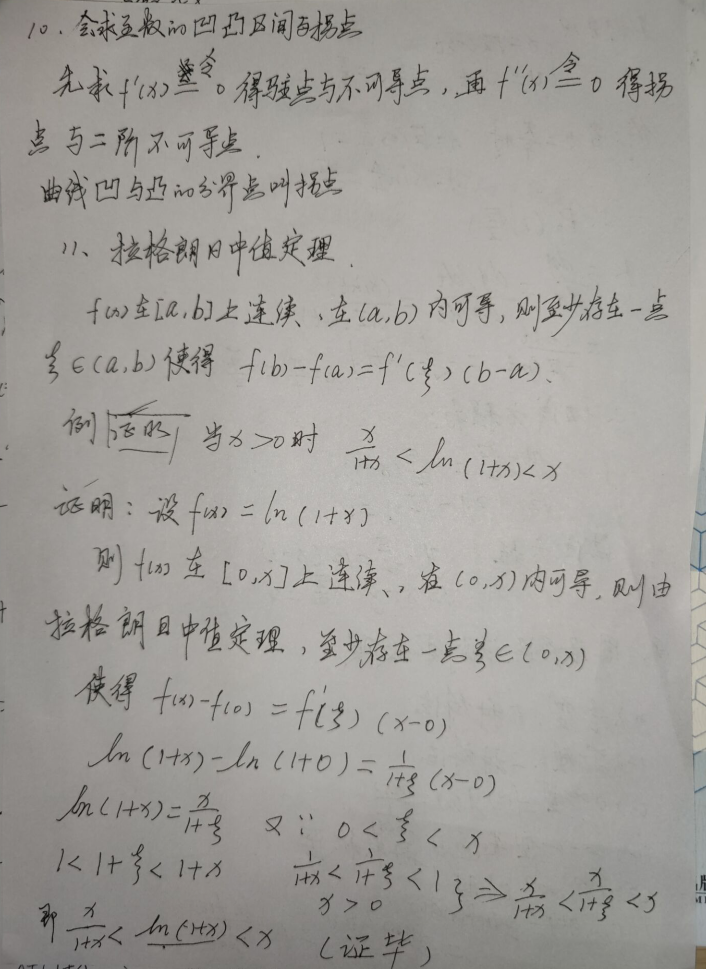 10. 会求函数的凹凸区间与拐点
先求f'(x) 令= 0 得驻点与不可导点, 再 f''(x) 令= 0 得拐
点与二阶不可导点.
曲线凹与凸的分界点叫拐点
11、拉格朗日中值定理.
f(x)在[a,b]上连续、在(a,b)内可导,则至少存在一点
ξ∈(a,b)使得 f(b)-f(a)=f'(ξ)(b-a).
例 证明 当x>0时 x/(1+x) < ln(1+x)<x
证明: 设 f(x) = ln(1+x)
则 f(x) 在 [0,x]上连续、, 在(0,x)内可导, 则由
拉格朗日中值定理, 至少存在一点ξ∈(0,x)
使得 f(x)-f(0) = f'(ξ)(x-0)
ln(1+x)-ln(1+0) = 1/(1+ξ) (x-0)
ln(1+x) = x/(1+ξ) 又∵ 0<ξ<x
1<1+ξ<1+x 1/(1+x)<1/(1+ξ)<1 } ⇒ x/(1+x)<x/(1+ξ)<x
x>0
即 x/(1+x) < ln(1+x) <x (证毕)